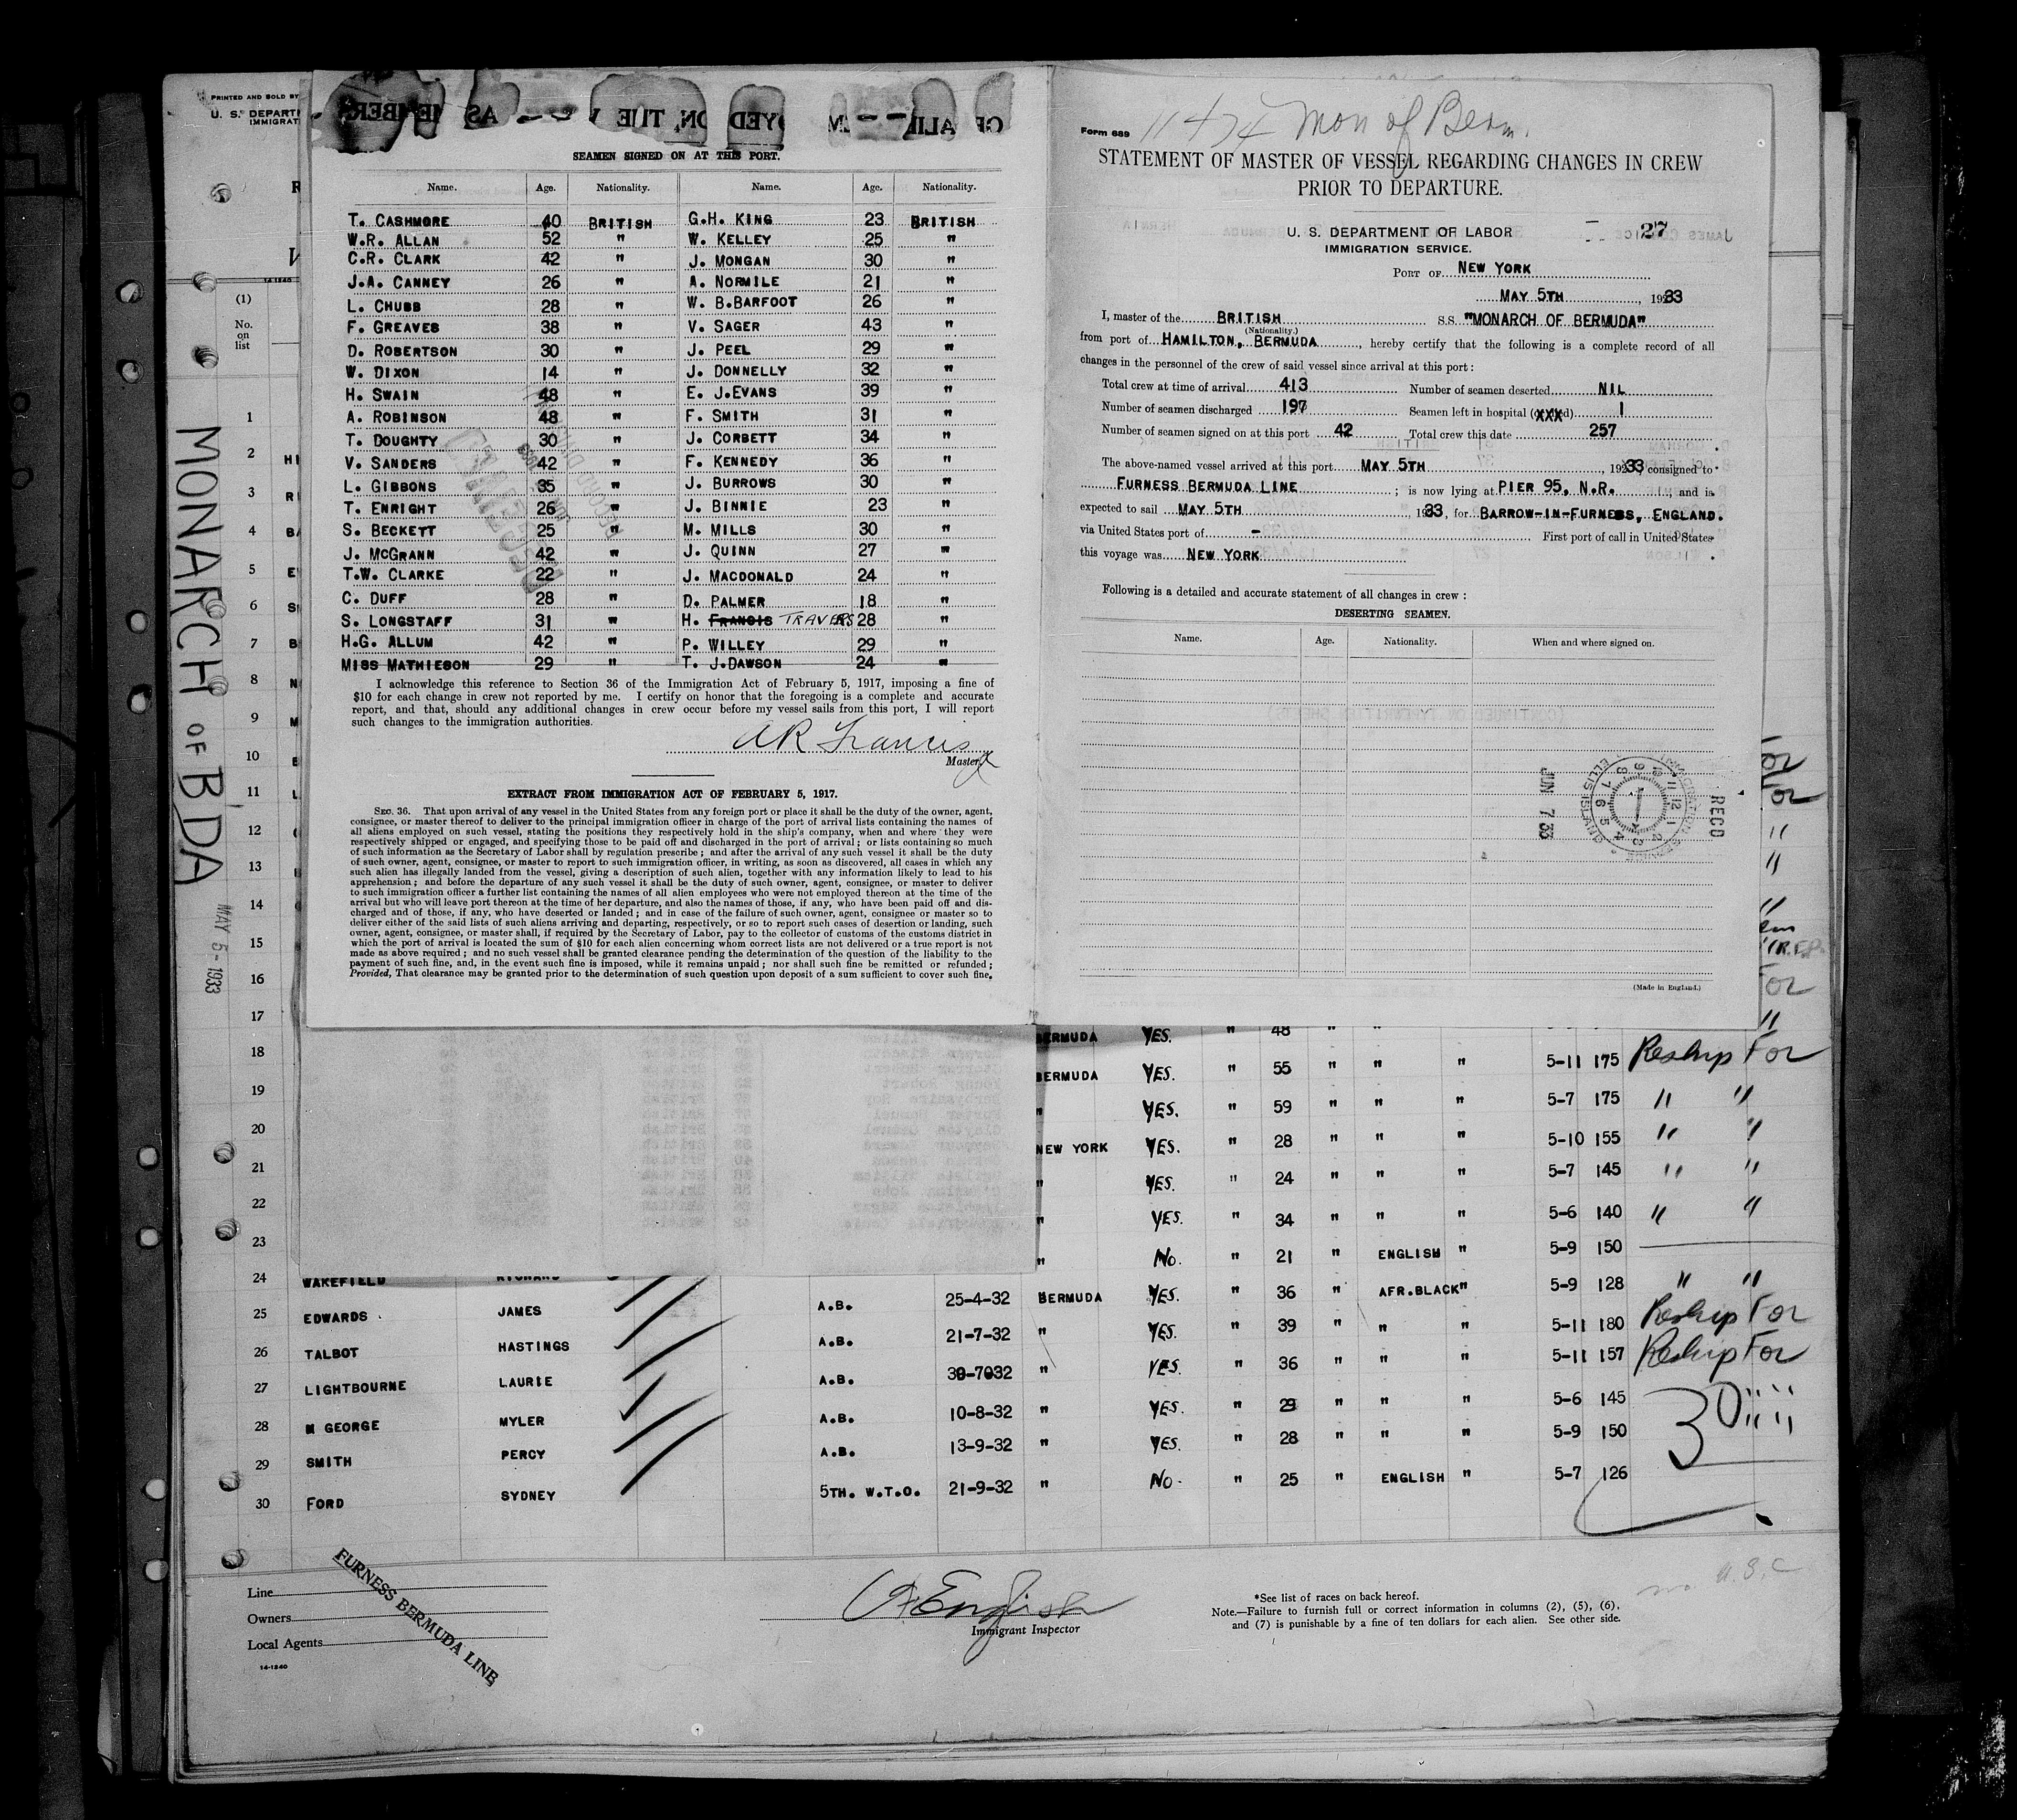 MONARCH OF B'DA
MAY 5 - 1933
PRINTED AND SOLD BY
U. S. DEPARTM
IMMIGRAT
14-1240
(1)
No.
on
list
SEAMEN SIGNED ON AT THIS PORT.
Name. Age. Nationality. Name. Age. Nationality.
T. CASHMORE 40 BRITISH G.H. KING 23 BRITISH
W.R. ALLAN 52 " W. KELLEY 25 "
C.R. CLARK 42 " J. MONGAN 30 "
J.A. CANNEY 26 " A. NORMILE 21 "
L. CHUBB 28 " W. B.BARFOOT 26 "
F. GREAVES 38 " V. SAGER 43 "
D. ROBERTSON 30 " J. PEEL 29 "
W. DIXON 14 " J. DONNELLY 32 "
H. SWAIN 48 " E. J.EVANS 39 "
A. ROBINSON 48 " F. SMITH 31 "
T. DOUGHTY 30 " J. CORBETT 34 "
V. SANDERS 42 " F. KENNEDY 36 "
L. GIBBONS 35 " J. BURROWS 30 "
T. ENRIGHT 26 " J. BINNIE 23 "
S. BECKETT 25 " M. MILLS 30 "
J. MCGRANN 42 " J. QUINN 27 "
T.W. CLARKE 22 " J. MACDONALD 24 "
C. DUFF 28 " D. PALMER 18 "
S. LONGSTAFF 31 " H. FRANCIS TRAVERS 28 "
H.G. ALLUM 42 " P. WILLEY 29 "
MISS MATHIESON 29 " T. J.DAWSON 24 "
I acknowledge this reference to Section 36 of the Immigration Act of February 5, 1917, imposing a fine of
$10 for each change in crew not reported by me. I certify on honor that the foregoing is a complete and accurate
report, and that, should any additional changes in crew occur before my vessel sails from this port, I will report
such changes to the immigration authorities.
AR Francis
Master.
EXTRACT FROM IMMIGRATION ACT OF FEBRUARY 5, 1917.
SEC. 36. That upon arrival of any vessel in the United States from any foreign port or place it shall be the duty of the owner, agent,
consignee, or master thereof to deliver to the principal immigration officer in charge of the port of arrival lists containing the names of
all aliens employed on such vessel, stating the positions they respectively hold in the ship's company, when and where they were
respectively shipped or engaged, and specifying those to be paid off and discharged in the port of arrival; or lists containing so much
of such information as the Secretary of Labor shall by regulation prescribe; and after the arrival of any such vessel it shall be the duty
of such owner, agent, consignee, or master to report to such immigration officer, in writing, as soon as discovered, all cases in which any
such alien has illegally landed from the vessel, giving a description of such alien, together with any information likely to lead to his
apprehension; and before the departure of any such vessel it shall be the duty of such owner, agent, consignee, or master to deliver
to such immigration officer a further list containing the names of all alien employees who were not employed thereon at the time of the
arrival but who will leave port thereon at the time of her departure, and also the names of those, if any, who have been paid off and dis-
charged and of those, if any, who have deserted or landed; and in case of the failure of such owner, agent, consignee or master so to
deliver either of the said lists of such aliens arriving and departing, respectively, or so to report such cases of desertion or landing, such
owner, agent, consignee, or master shall, if required by the Secretary of Labor, pay to the collector of customs of the customs district in
which the port of arrival is located the sum of $10 for each alien concerning whom correct lists are not delivered or a true report is not
made as above required; and no such vessel shall be granted clearance pending the determination of the question of the liability to the
payment of such fine, and, in the event such fine is imposed, while it remains unpaid; nor shall such fine be remitted or refunded;
Provided, That clearance may be granted prior to the determination of such question upon deposit of a sum sufficient to cover such fine.
Form 689 11474 Mon of Berm.
STATEMENT OF MASTER OF VESSEL REGARDING CHANGES IN CREW
PRIOR TO DEPARTURE.
27
U. S. DEPARTMENT OF LABOR
IMMIGRATION SERVICE.
PORT OF NEW YORK
MAY 5TH , 1933
I, master of the BRITISH S.S. "MONARCH OF BERMUDA"
(Nationality.)
from port of HAMILTON, BERMUDA , hereby certify that the following is a complete record of all
changes in the personnel of the crew of said vessel since arrival at this port:
Total crew at time of arrival 413 Number of seamen deserted NIL
Number of seamen discharged 197 Seamen left in hospital (XXX) 1
Number of seamen signed on at this port 42 Total crew this date 257
The above-named vessel arrived at this port MAY 5TH , 1933, consigned to
FURNESS BERMUDA LINE ; is now lying at PIER 95, N.R. , and is
expected to sail MAY 5TH , 1933, for BARROW-IN-FURNESS, ENGLAND.
via United States port of - First port of call in United States
this voyage was NEW YORK
Following is a detailed and accurate statement of all changes in crew:
DESERTING SEAMEN.
Name. Age. Nationality. When and where signed on.
JUN 7 33
ELLIS ISLAND
RECD
(Made in England.)
1
2
3
4
5
6
7
8
9
10
11
12
13
14
15
16
17
18
19
20
21
22
23
BERMUDA YES. " 48 " "
BERMUDA YES. " 55 " " " 5-11 175 Reship For
" YES. " 59 " " " 5-7 175 " "
NEW YORK YES. " 28 " " " 5-10 155 " "
" YES. " 24 " " " 5-7 145 " "
" YES. " 34 " " " 5-6 140 " "
" No. " 21 " ENGLISH " 5-9 150
24 WAKEFIELD RICHARD
25 EDWARDS JAMES A.B. 25-4-32 BERMUDA YES. " 36 " AFR.BLACK " 5-9 128 " "
26 TALBOT HASTINGS A.B. 21-7-32 " YES. " 39 " " " 5-11 180 Reship For
27 LIGHTBOURNE LAURIE A.B. 30-7032 " YES. " 36 " " " 5-11 157 Reship For
28 M GEORGE MYLER A.B. 10-8-32 " YES. " 29 " " " 5-6 145
29 SMITH PERCY A.B. 13-9-32 " YES. " 28 " " " 5-9 150
30 FORD SYDNEY 5TH. W.T.O. 21-9-32 " No. " 25 " ENGLISH " 5-7 126
30
Line
Owners
Local Agents
FURNESS BERMUDA LINE
14-1240
English
Immigrant Inspector
*See list of races on back hereof.
Note.—Failure to furnish full or correct information in columns (2), (5), (6),
and (7) is punishable by a fine of ten dollars for each alien. See other side.
no. U.S.C